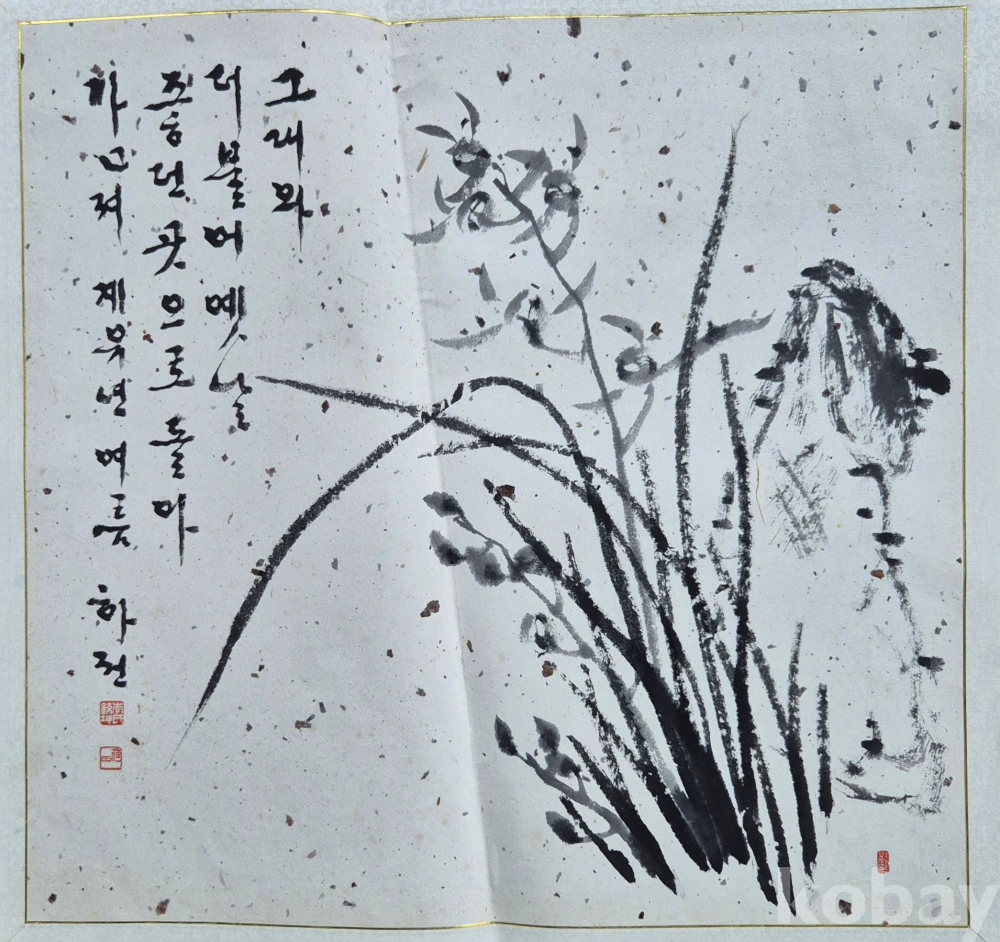 그대와
더불어 옛날
좋던 곳으로 돌아
가고저 계유년 여름 하전
kobay